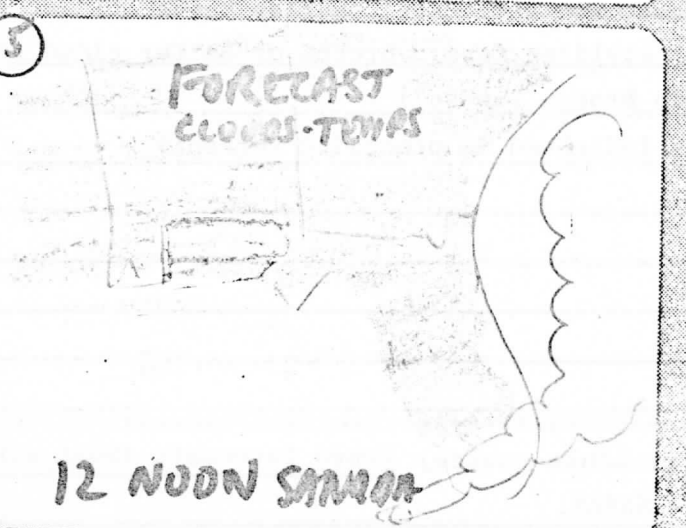 5
FORECAST
CLOUDS-TEMPS
12 NOON SAMOA